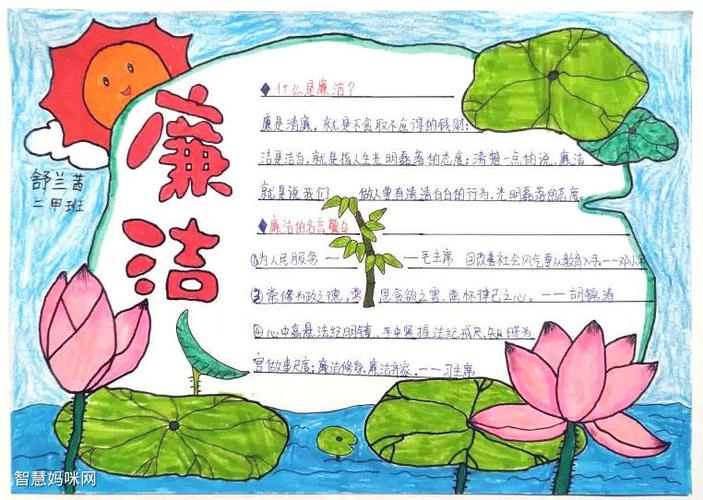 廉洁
舒兰茜
二甲班
什么是廉洁?
廉是清廉,就是不贪取不应得的钱财;
洁是洁白,就是指人生光明磊落的态度;清楚一点的说,廉洁
就是说我们 做人要有清清白白的行为,光明磊落的态度。
廉洁的名言警句
①为人民服务 —— 毛主席 ②改善社会风气要从教育入手。——邓小平
③常修为政之德,常 思贪欲之害,常怀律己之心。——胡锦涛
④心中高悬法纪明镜,手中紧握法纪戒尺,知晓为
官做事尺度;廉洁修身,廉洁齐家。——习主席
智慧妈咪网